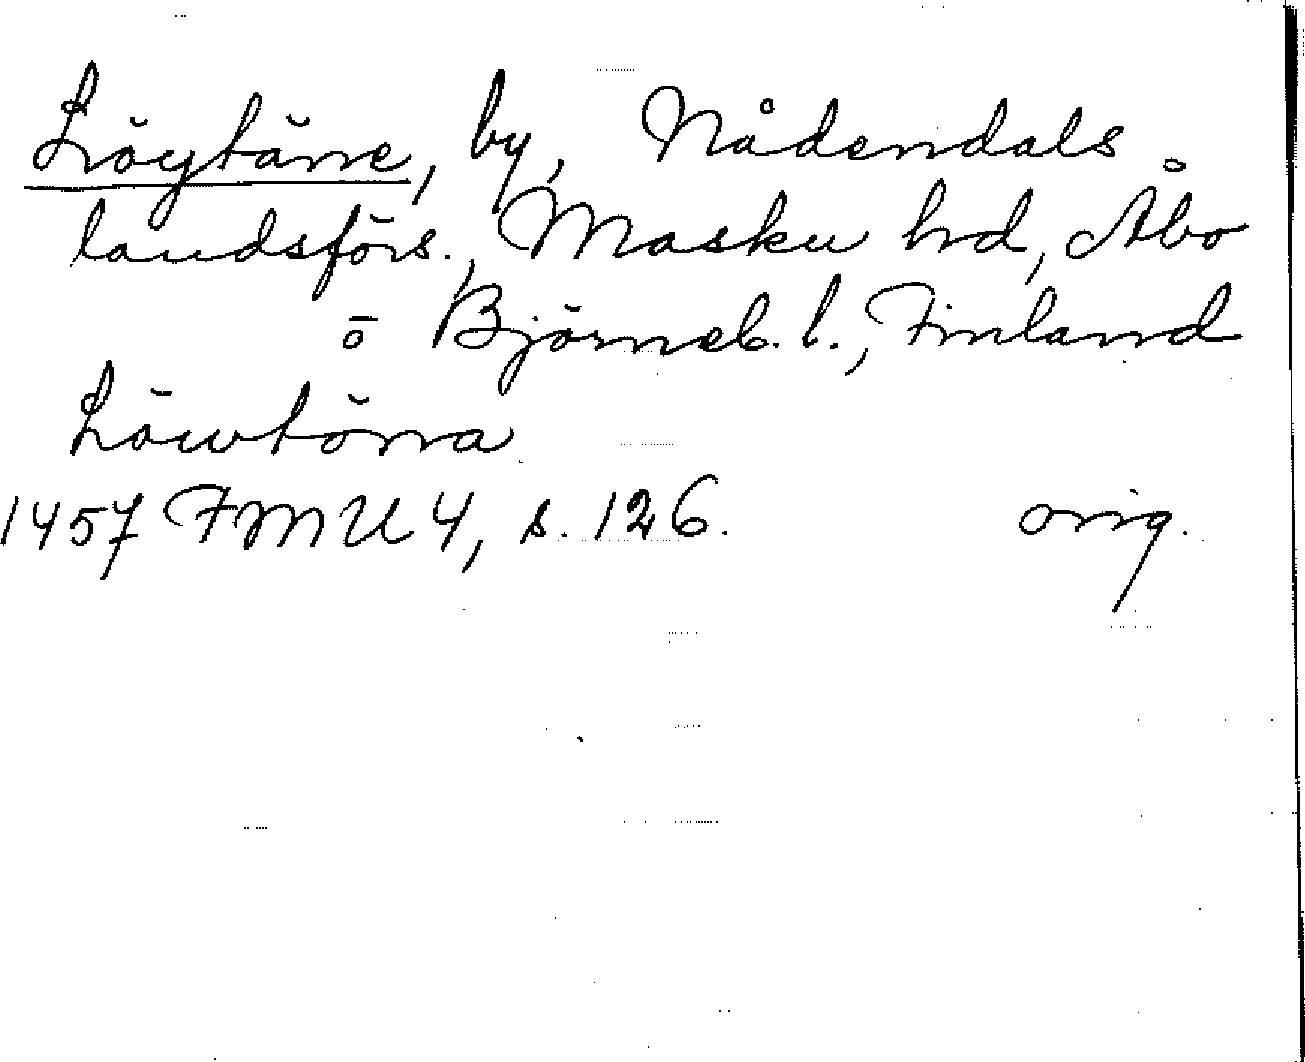 Löytäne, by, Nådendals
landsförs., Masku hd, Åbo
o Björneb. l., Finland
Löwtörra
1457 FMU 4, s. 126. orig.